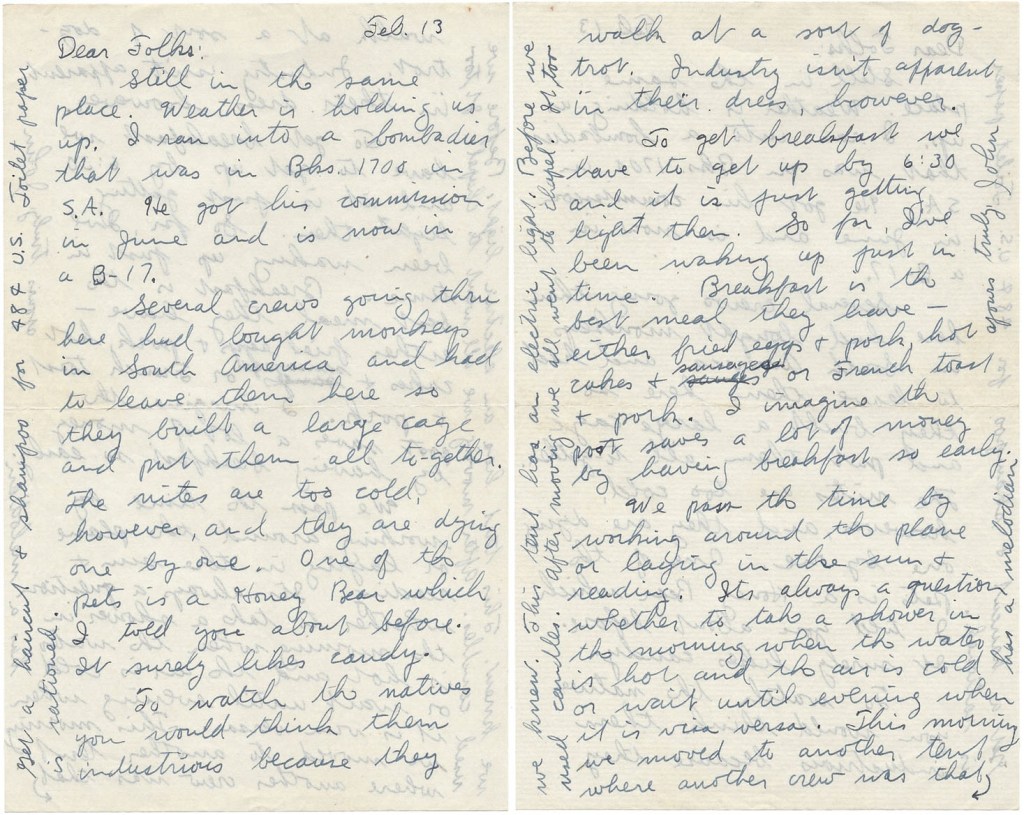 Feb. 13
Dear Folks:
Still in the same
place. Weather is holding us
up. I ran into a bombadier
that was in Bks. 1700 in
S.A. He got his commission
in June and is now in
a B-17.
Several crews going thru
here had bought monkeys
in South America and had
to leave them here so
they built a large cage
and put them all to-gether.
The nites are too cold,
however, and they are dying
one by one. One of the
pets is a Honey Bear which
I told you about before.
It surely likes candy.
To watch the natives
you would think them
industrious because they
walk at a sort of dog-
trot. Industry isn't apparent
in their dress, however.
To get breakfast we
have to get up by 6:30
and it is just getting
light then. So far, I've
been waking up just in
time. Breakfast is the
best meal they have —
either fried eggs & pork, hot
cakes & sausage or French toast
& pork. I imagine the
post saves a lot of money
by having breakfast so early.
We pass the time by
working around the plane
or laying in the sun &
reading. Its always a question
whether to take a shower in
the morning when the water
is hot and the air is cold
or wait until evening when
it is visa versa. This morning
we moved to another tent
where another crew was that
we knew. This tent has an electric light. Before we
used candles. After moving we all went to chapel. It too
has a melodian
yours truly, John
Get a haircut & shampoo for 48¢ U.S. Toilet paper
is rationed.